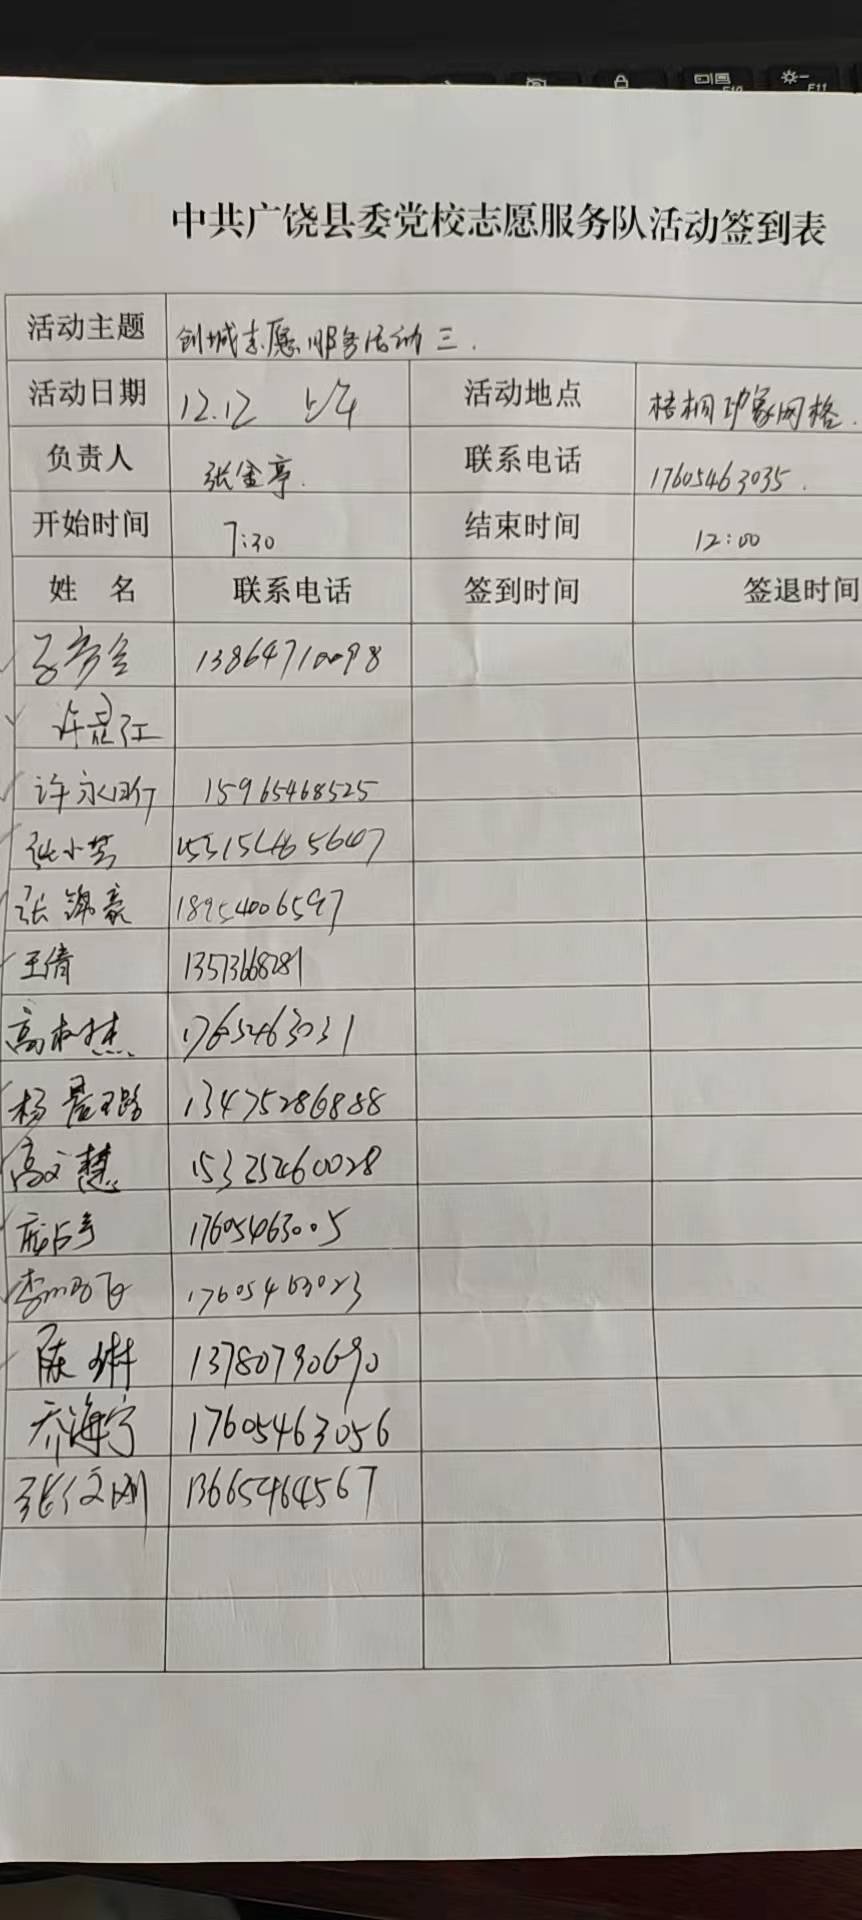 中共广饶县委党校志愿服务队活动签到表
活动主题 创城志愿服务活动三.
活动日期 12.12 上午 活动地点 梧桐印象网格.
负责人 张金亭. 联系电话 17605463035.
开始时间 7:30 结束时间 12:00
姓 名 联系电话 签到时间 签退时间
13864710098
许永昕 15965468525
张小芳 15315465647
张锦豪 18954006597
王倩 13573668281
高树杰 1765463031
杨 13475286888
高文慧 15325460028
庞占春 17605463005
李鹏飞 17605463023
陈琳 13780790690
乔海宁 17605463056
张俊刚 13665464567